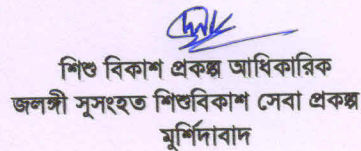 শিশু বিকাশ প্রকল্প আধিকারিক
জলঙ্গী সুসংহত শিশুবিকাশ সেবা প্রকল্প
মুর্শিদাবাদ